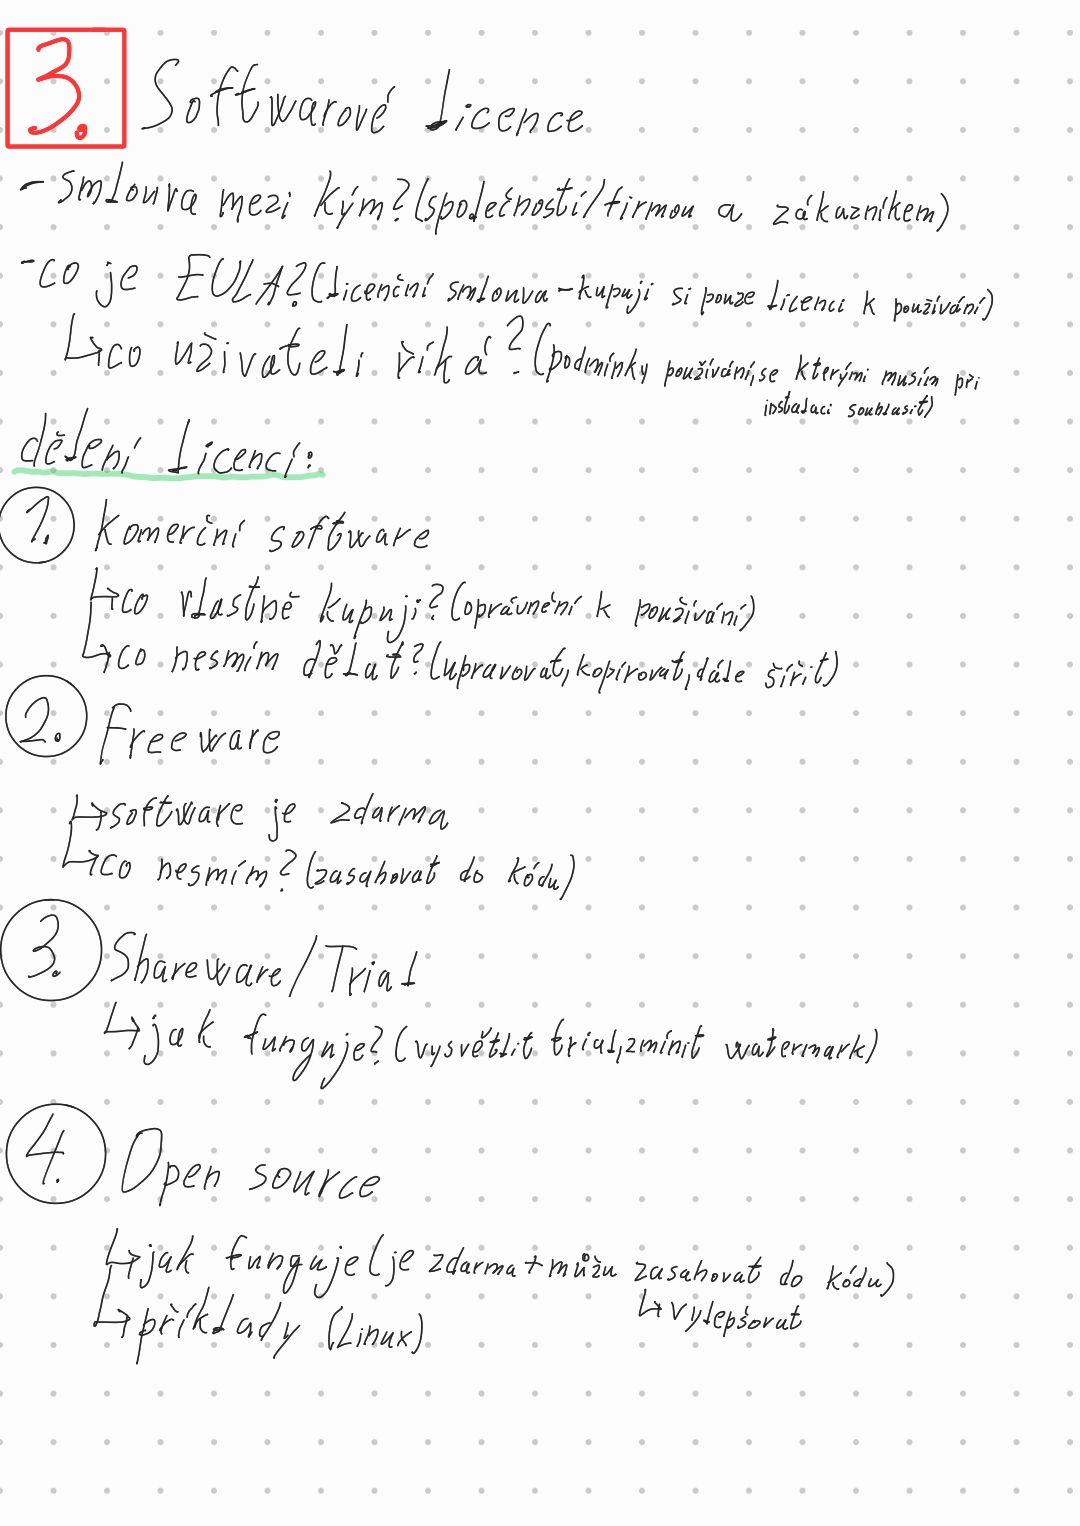 3. Softwarové licence
- smlouva mezi kým? (společností/firmou a zákazníkem)
- co je EULA? (licenční smlouva - kupuji si pouze licenci k používání)
↳ co uživateli říká? (podmínky používání, se kterými musím při
instalaci souhlasit)
dělení licencí:
1. Komerční software
↳ co vlastně kupuji? (oprávnění k používání)
↳ co nesmím dělat? (upravovat, kopírovat, dále šířit)
2. Freeware
↳ software je zdarma
↳ co nesmím? (zasahovat do kódu)
3. Shareware/Trial
↳ jak funguje? (vysvětlit trial, zmínit watermark)
4. Open source
↳ jak funguje (je zdarma + můžu zasahovat do kódu)
↳ vylepšovat
↳ příklady (Linux)